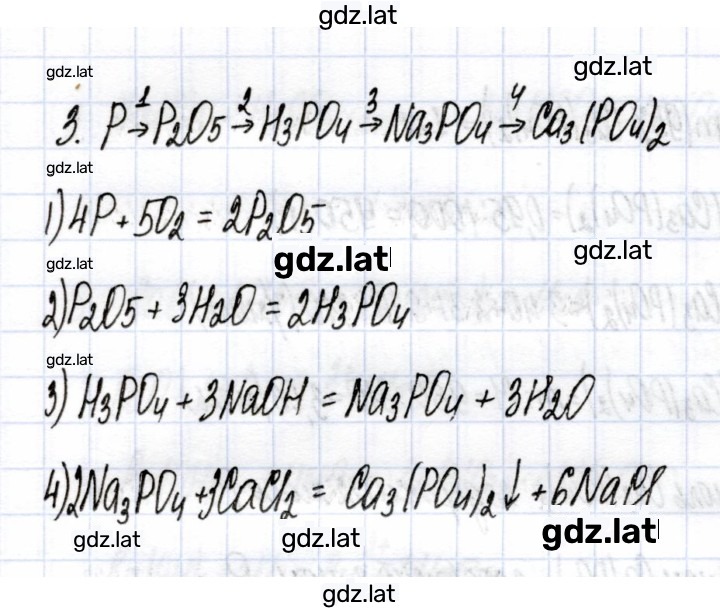 gdz.lat
gdz.lat
gdz.lat
3. P →¹ P2O5 →² H3PO4 →³ Na3PO4 →⁴ Ca3(PO4)2
gdz.lat
1) 4P + 5O2 = 2P2O5
gdz.lat
gdz.lat
gdz.lat
2) P2O5 + 3H2O = 2H3PO4
gdz.lat
3) H3PO4 + 3NaOH = Na3PO4 + 3H2O
4) 2Na3PO4 + 3CaCl2 = Ca3(PO4)2↓ + 6NaCl
gdz.lat
gdz.lat
gdz.lat
gdz.lat